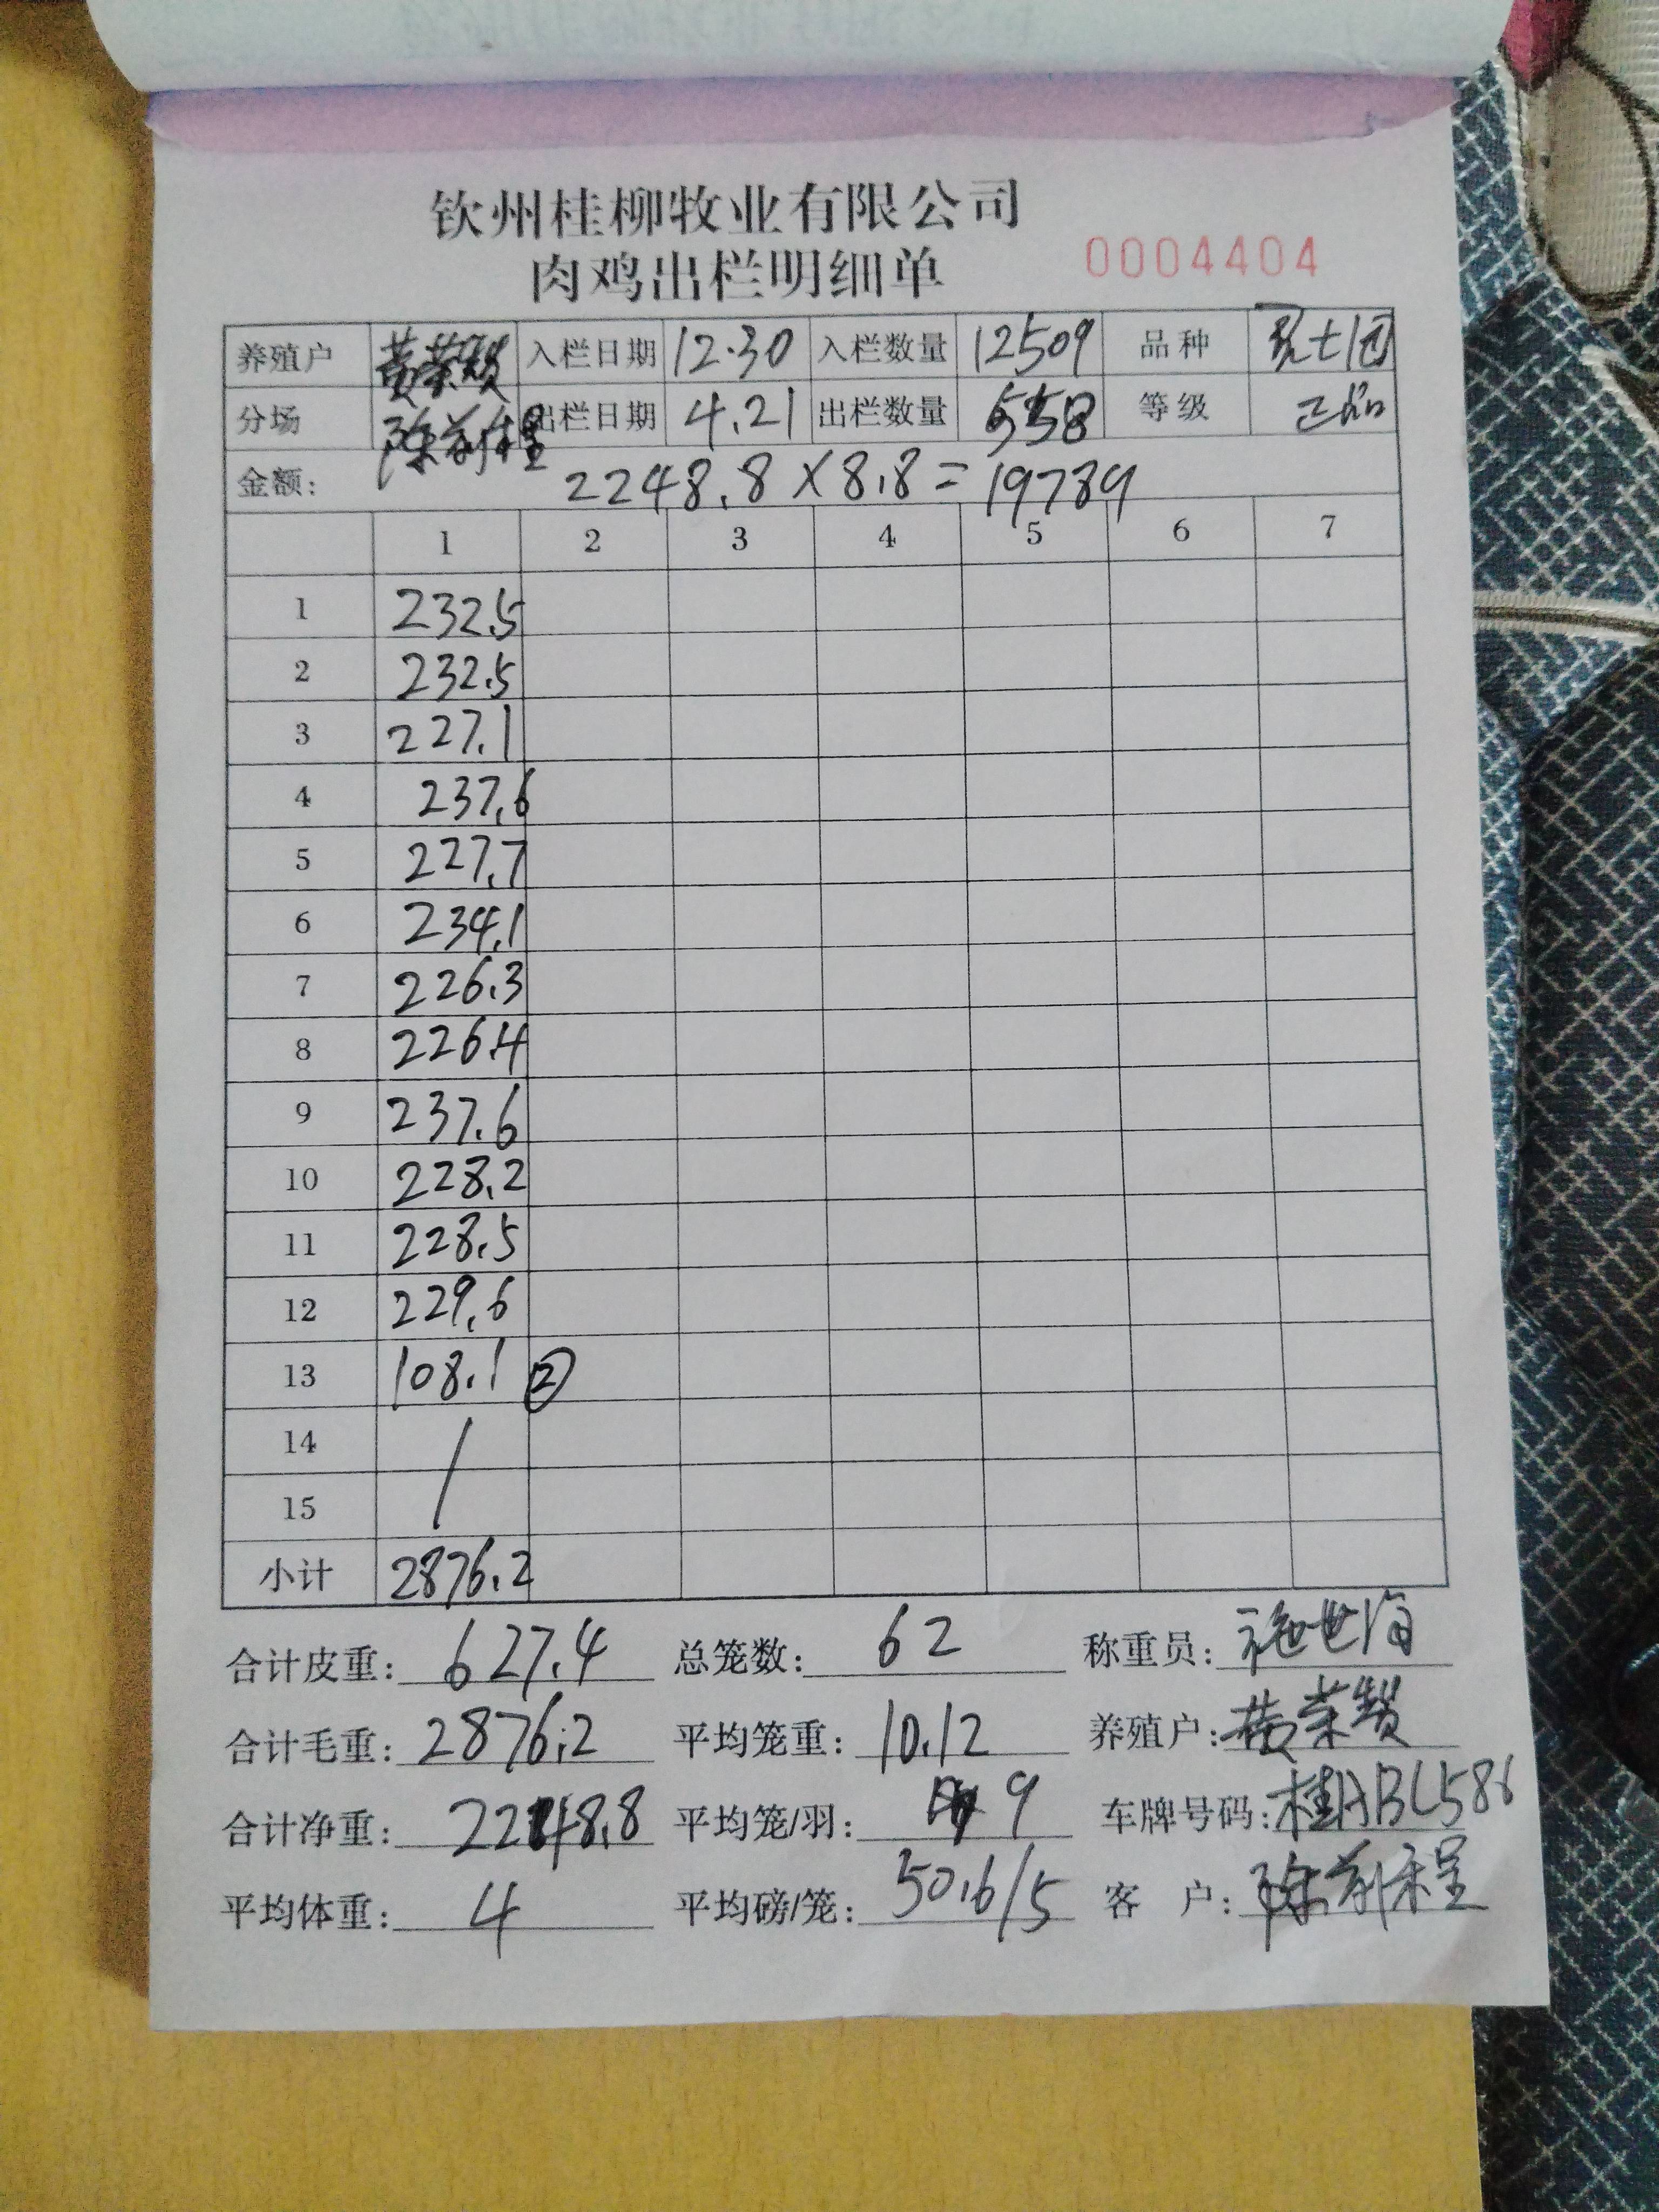 钦州桂柳牧业有限公司
肉鸡出栏明细单 0004404
养殖户 黄荣赞 入栏日期 12.30 入栏数量 12509 品种
分场 陈前程 出栏日期 4.21 出栏数量 558 等级 正品
金额: 2248.8×8.8=19789
1 2 3 4 5 6 7
1 232.5
2 232.5
3 227.1
4 237.6
5 227.7
6 234.1
7 226.3
8 226.4
9 237.6
10 228.2
11 228.5
12 229.6
13 108.1 ②
14 /
15
小计 2876.2
合计皮重: 627.4 总笼数: 62 称重员: 施世海
合计毛重: 2876.2 平均笼重: 10.12 养殖户: 黄荣赞
合计净重: 2248.8 平均笼/羽: 9 车牌号码: 桂ABL586
平均体重: 4 平均磅/笼: 50.6/5 客 户: 陈前程